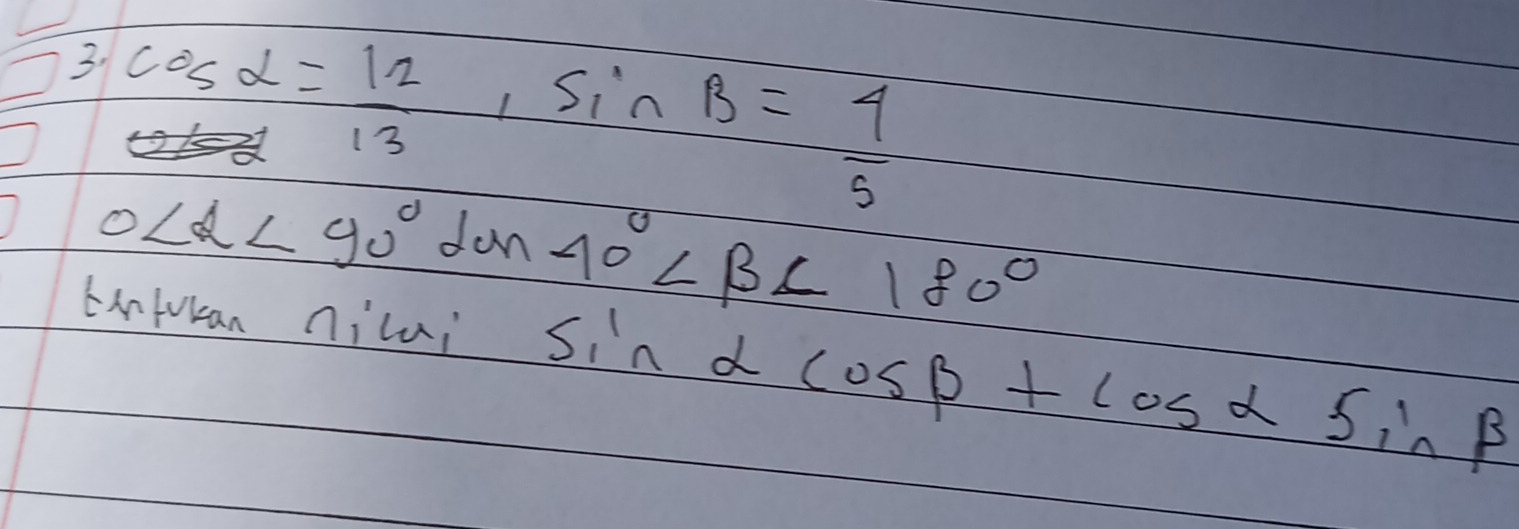 3. cos α = 12/13, sin β = 4/5
0 < α < 90° dan 90° < β < 180°
tentukan nilai sin α cos β + cos α sin β